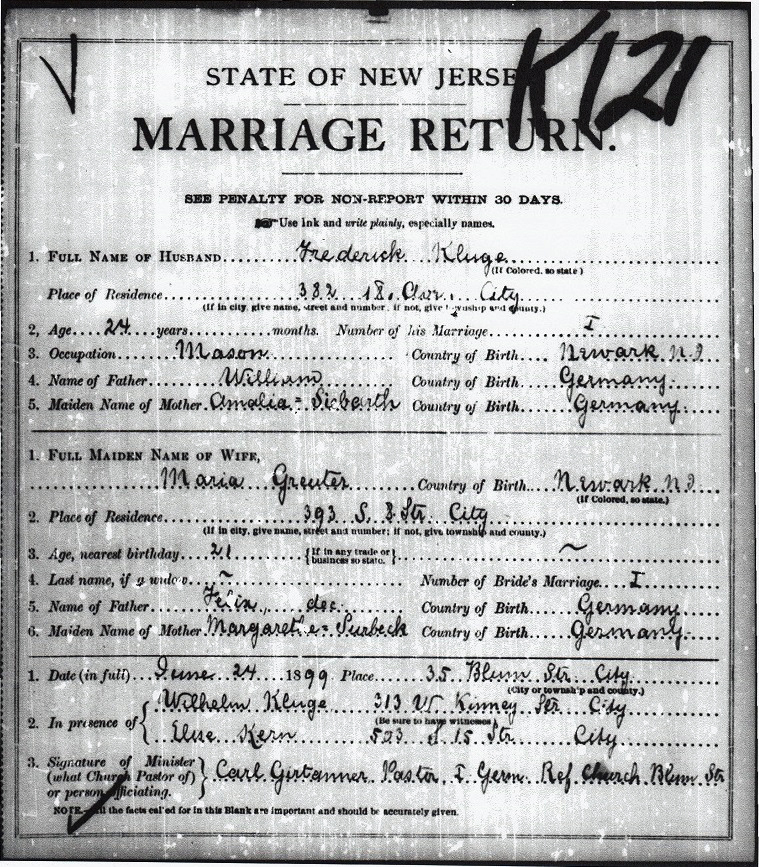 K121
STATE OF NEW JERSE
MARRIAGE RETURN.
SEE PENALTY FOR NON-REPORT WITHIN 30 DAYS.
Use Ink and write plainly, especially names.
1. FULL NAME OF HUSBAND Frederick Kluge
(If Colored, so state)
Place of Residence 382 18. Ave. City
(If in city, give name, street and number; if not, give township and county.)
2, Age 24 years months. Number of his Marriage I
3. Occupation Mason Country of Birth Newark N.J
4. Name of Father William Country of Birth Germany
5. Maiden Name of Mother Amalia = Sieberth Country of Birth Germany
1. FULL MAIDEN NAME OF WIFE,
Maria Greuter Country of Birth Newark N.J
(If Colored, so state.)
2. Place of Residence 393 S. 8 Str. City
(If in city, give name, street and number; if not, give township and county.)
3. Age, nearest birthday 21 {If in any trade or business so state.} ~
4. Last name, if a widow ~ Number of Bride's Marriage I
5. Name of Father Felix, dec. Country of Birth Germany
6. Maiden Name of Mother Margarethe = Surbeck Country of Birth Germany
1. Date (in full) June 24 1899 Place 35 Blum Str. City
(City or township and county.)
2. In presence of { Wilhelm Kluge 313 W. Kinney Str City
(Be sure to have witnesses)
Elise Kern 503 S 15 Str City
3. Signature of Minister
(what Church Pastor of) } Carl Girtanner Pastor, I Germ. Ref. Church Blum Str
or person officiating.
NOTE.—All the facts called for in this Blank are important and should be accurately given.